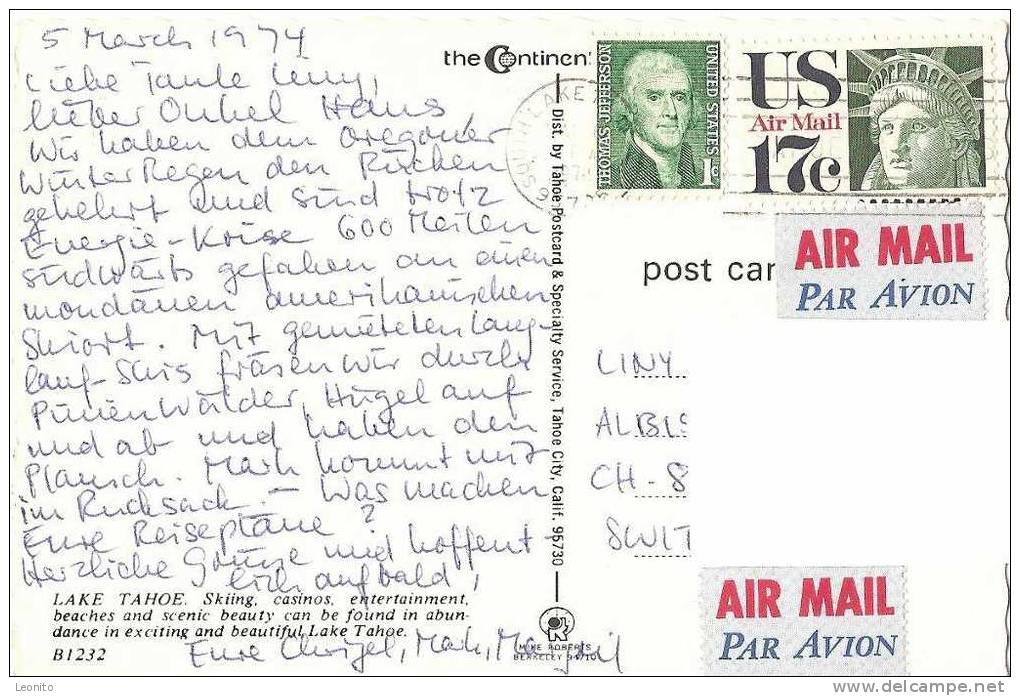 5 March 1974
Liebe Tante Liny,
lieber Onkel Hans
Wir haben dem Oregoner
Winter Regen den Rücken
gekehrt und sind trotz
Energie-Krise 600 Meilen
südwärts gefahren an einen
mondänen amerikanischen
Skiort. Mit gemieteten Lang-
lauf-Skis fräsen wir durch
Pinienwälder, Hügel auf
und ab und haben den
Plausch. Mark kommt mit
im Rucksack. – Was machen
Eure Reisepläne?
Herzliche Grüsse und hoffent-
lich auf bald,
Eure
LAKE TAHOE. Skiing, casinos, entertainment,
beaches and scenic beauty can be found in abun-
dance in exciting and beautiful Lake Tahoe.
B1232
the Continen
Dist. by Tahoe Postcard & Specialty Service, Tahoe City, Calif. 95730
MIKE ROBERTS
BERKELEY 94710
THOMAS JEFFERSON
UNITED STATES
1c
US
Air Mail
17c
AIR MAIL
PAR AVION
post car
LINY
ALBIS
CH-8
SWIT
AIR MAIL
PAR AVION
Leonito
delcampe.net